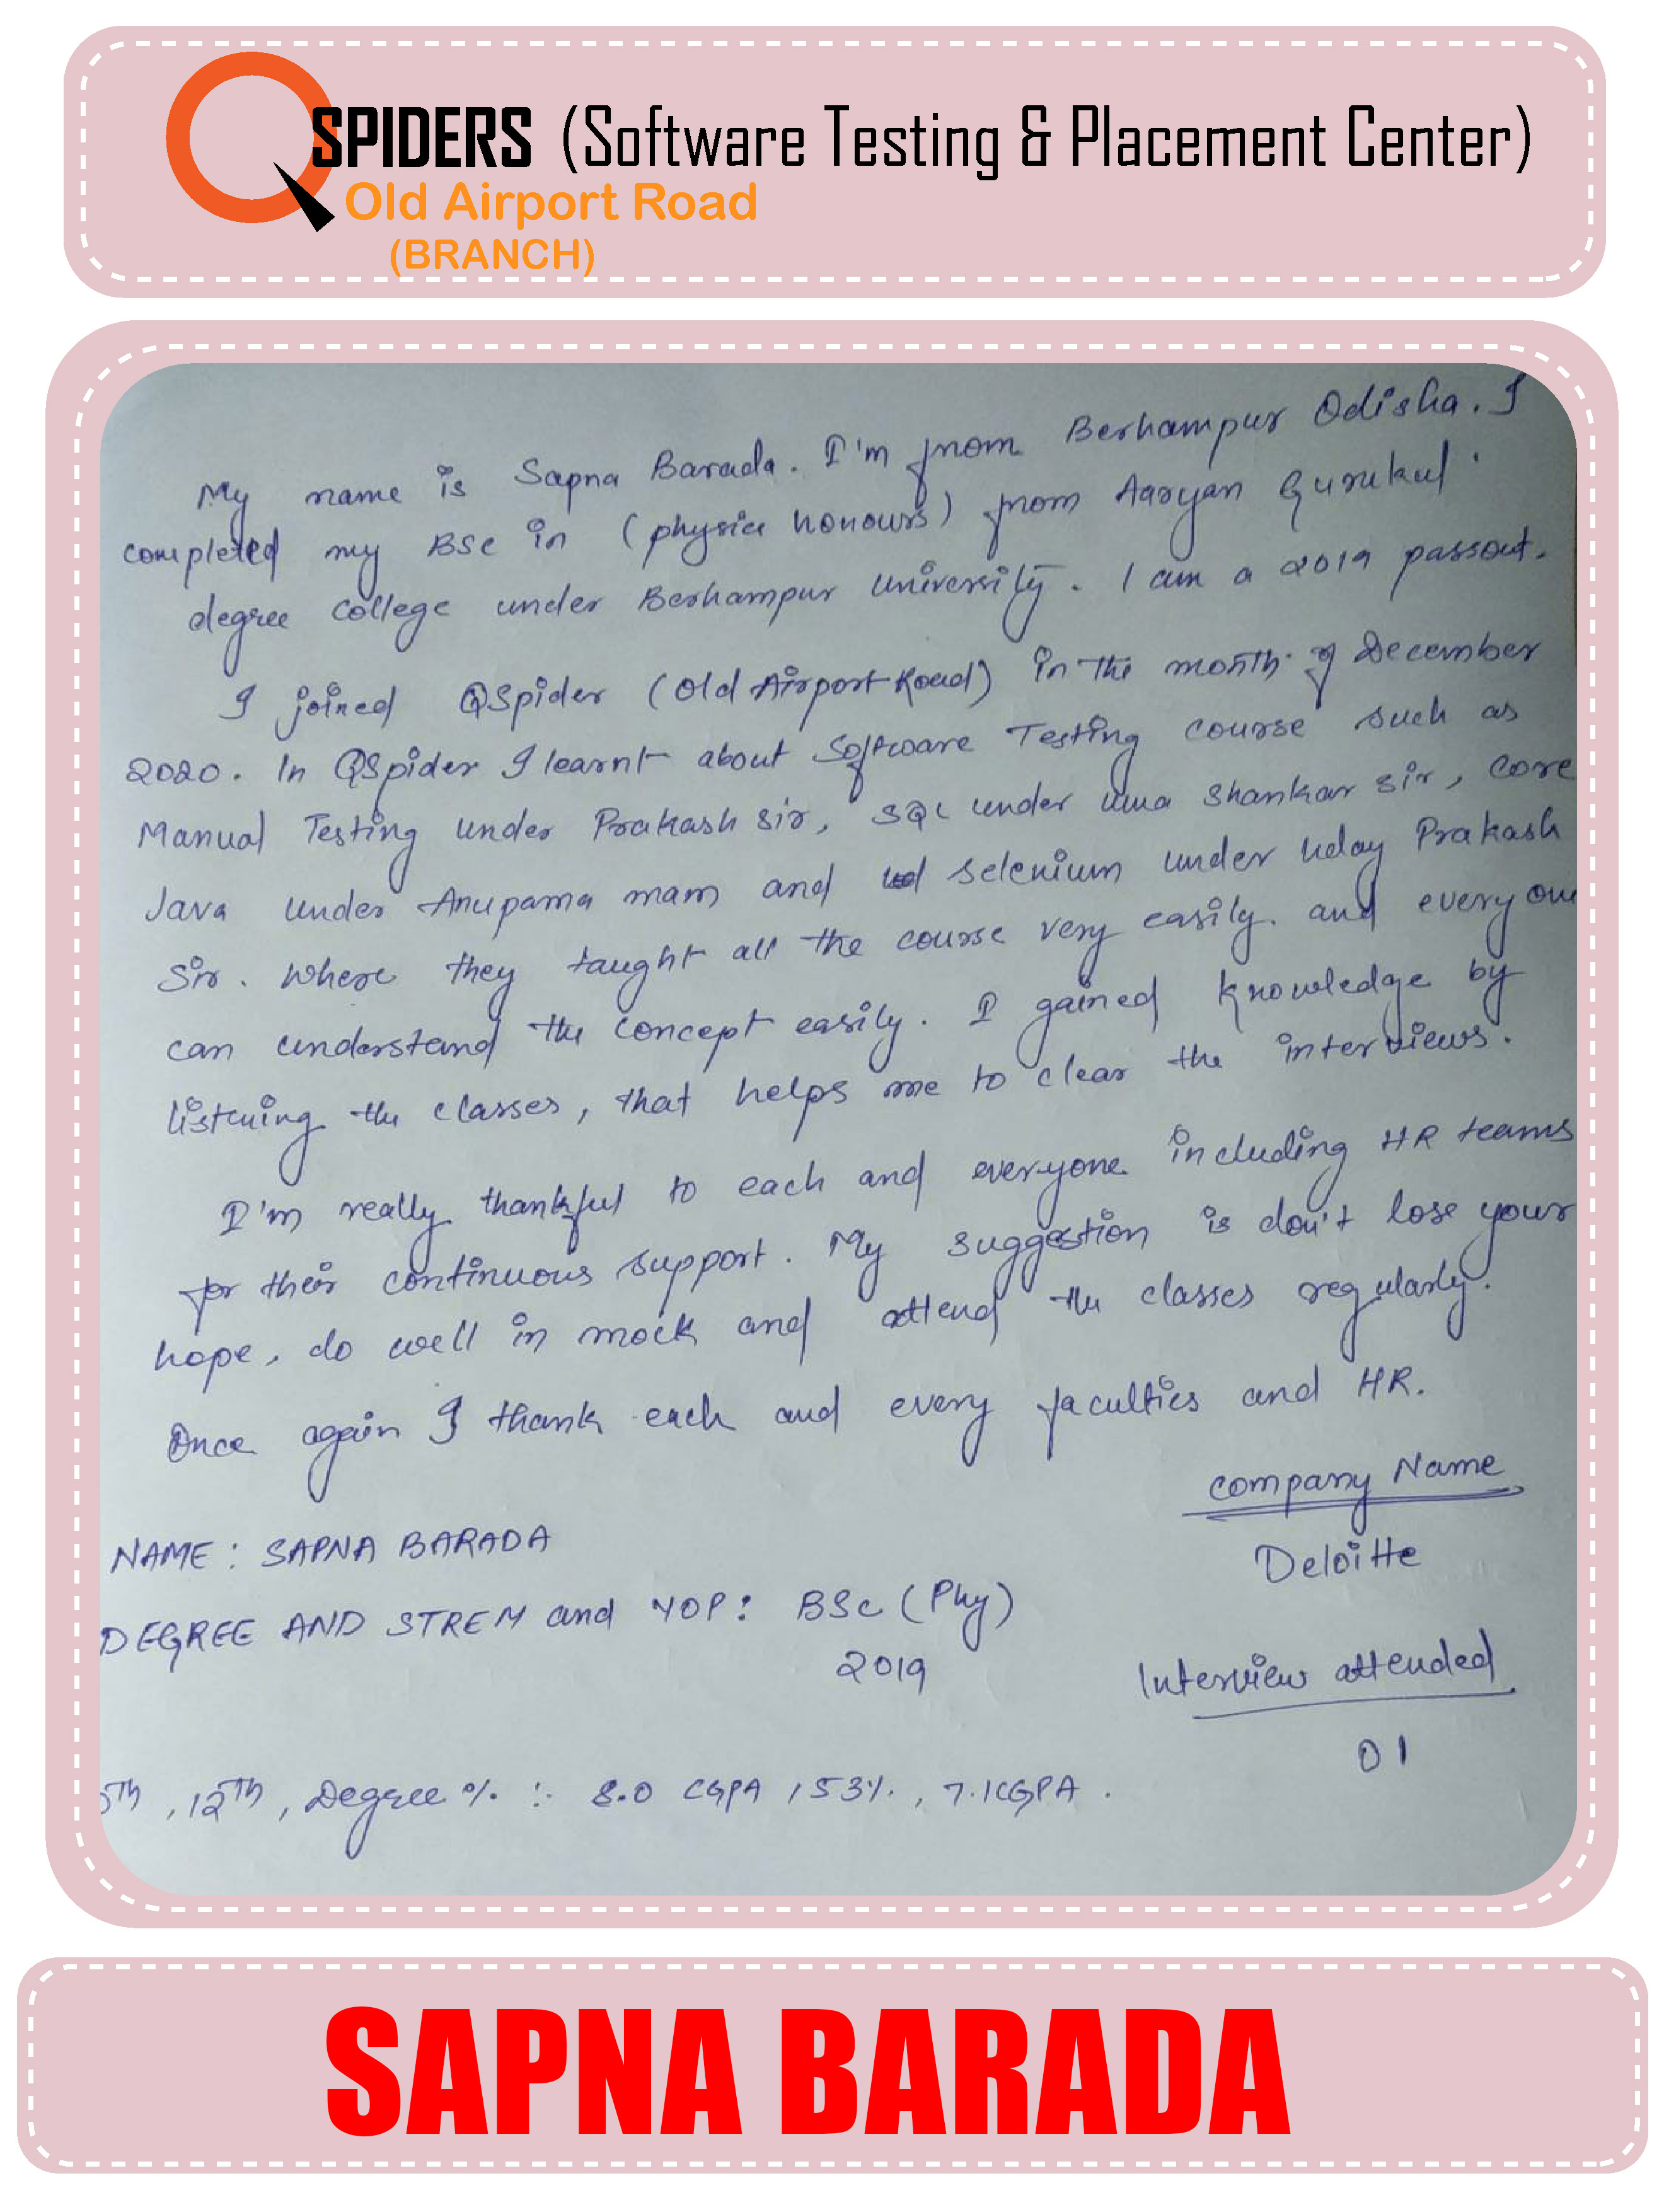 QSPIDERS (Software Testing & Placement Center)
Old Airport Road
(BRANCH)
My name is Sapna Barada. I'm from Berhampur Odisha. I
completed my BSc in (physics honours) from Aaryan Gurukul
degree college under Berhampur university. I am a 2019 passout.
I joined QSpider (Old Airport Road) in the month of December
2020. In QSpider I learnt about Software Testing course such as
Manual Testing under Prakash sir, SQL under Uma Shankar sir, Core
Java under Anupama mam and selenium under Uday Prakash
Sir. Where they taught all the course very easily. and every one
can understand the concept easily. I gained knowledge by
listening the classes, that helps me to clear the interviews.
I'm really thankful to each and everyone including HR teams
for their continuous support. My suggestion is don't lose your
hope, do well in mock and attend the classes regularly.
Once again I thank each and every faculties and HR.
Company Name
Deloitte
NAME : SAPNA BARADA
DEGREE AND STREM and YOP : BSc (Phy)
2019
Interview attended
01
Th, 12Th, Degree % : 8.0 CGPA, 53%, 7.1 CGPA.
SAPNA BARADA